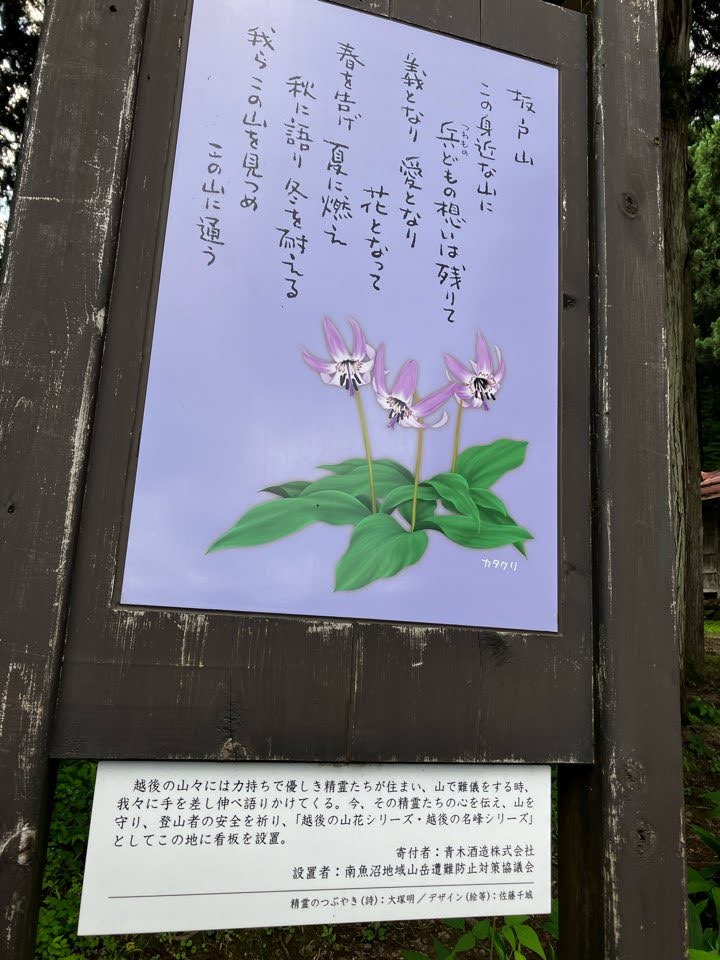 坂戸山
この身近な山に
兵どもの想いは残りて
つわもの
義となり 愛となり
花となって
春を告げ 夏に燃え
秋に語り 冬を耐える
我ら この山を見つめ
この山に通う
カタクリ
越後の山々には力持ちで優しき精霊たちが住まい、山で難儀をする時、
我々に手を差し伸べ語りかけてくる。今、その精霊たちの心を伝え、山を
守り、登山者の安全を祈り、「越後の山花シリーズ・越後の名峰シリーズ」
としてこの地に看板を設置。
寄付者：青木酒造株式会社
設置者：南魚沼地域山岳遭難防止対策協議会
精霊のつぶやき（詩）：大塚明／デザイン（絵等）：佐藤千城